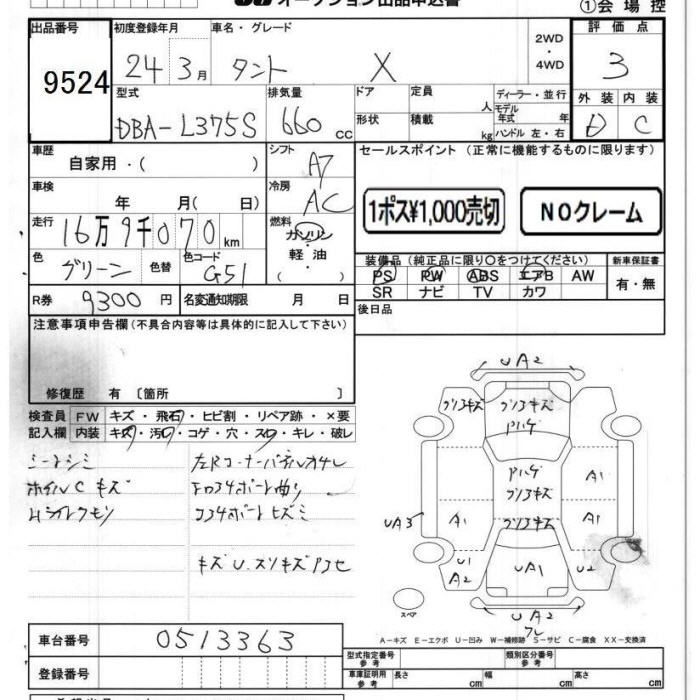 オークション出品申込書
①会場控
出品番号 9524
初度登録年月 24 3月
車名・グレード タント X
2WD ・ 4WD
評価点 3
型式 DBA-L375S
排気量 660 cc
ドア 形状
定員 人
積載 kg
ディーラー・並行
モデル年式 年
ハンドル 左・右
外装 D 内装 C
車歴 自家用・( )
シフト A7
セールスポイント (正常に機能するものに限ります)
1ポス¥1,000売切
NOクレーム
車検 年 月( 日)
冷房 AC
走行 16万9千070km
燃料 ガソリン・軽油・( )
色 グリーン 色替
色コード G51
装備品 (純正品に限り○をつけてください)
PS PW ABS エアB AW
SR ナビ TV カワ
新車保証書 有・無
R券 9300円
名変通知期限 月 日
後日品
注意事項申告欄 (不具合内容等は具体的に記入して下さい)
修復歴 有 〔箇所 〕
検査員記入欄
FW キズ・飛石・ヒビ割・リペア跡・×要
内装 キズ・汚レ・コゲ・穴・スレ・キレ・破レ
シートシミ
ホイルC キズ
UA2
UA3
A1
A1
A1
U1
A2
UA1
U2
UA2
スペア
A-キズ E-エクボ U-凹み W-補修跡 S-サビ C-腐食 XX-交換済
車台番号 0513363
登録番号
型式指定番号 参考
類別区分番号 参考
車庫証明用 参考 長さ cm 幅 cm 高さ cm